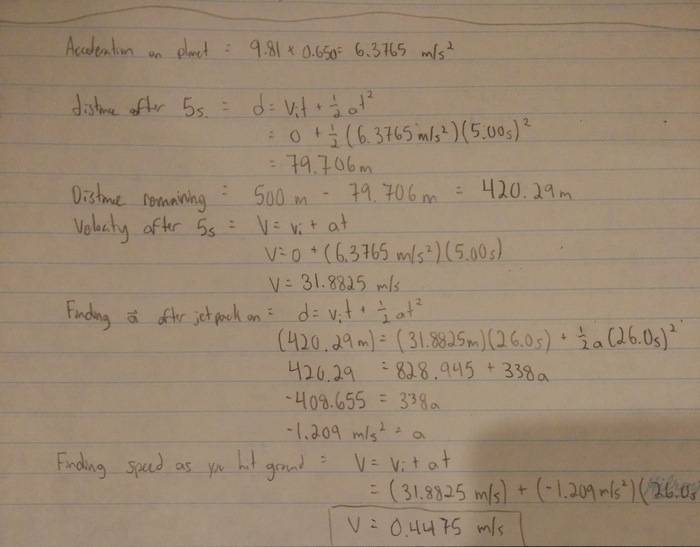 Acceleration on planet = 9.81 × 0.650 = 6.3765 m/s²
distance after 5s. = d = vᵢt + ½at²
= 0 + ½(6.3765 m/s²)(5.00s)²
= 79.706m
Distance remaining = 500 m - 79.706 m = 420.29m
Velocity after 5s = V = vᵢ + at
V = 0 + (6.3765 m/s²)(5.00s)
V = 31.8825 m/s
Finding a⃗ after jetpack on = d = vᵢt + ½at²
(420.29m) = (31.8825m)(26.0s) + ½a(26.0s)²
420.29 = 828.945 + 338a
-408.655 = 338a
-1.209 m/s² = a
Finding speed as you hit ground = V = vᵢ + at
= (31.8825 m/s) + (-1.209m/s²)(26.0s
V = 0.4475 m/s